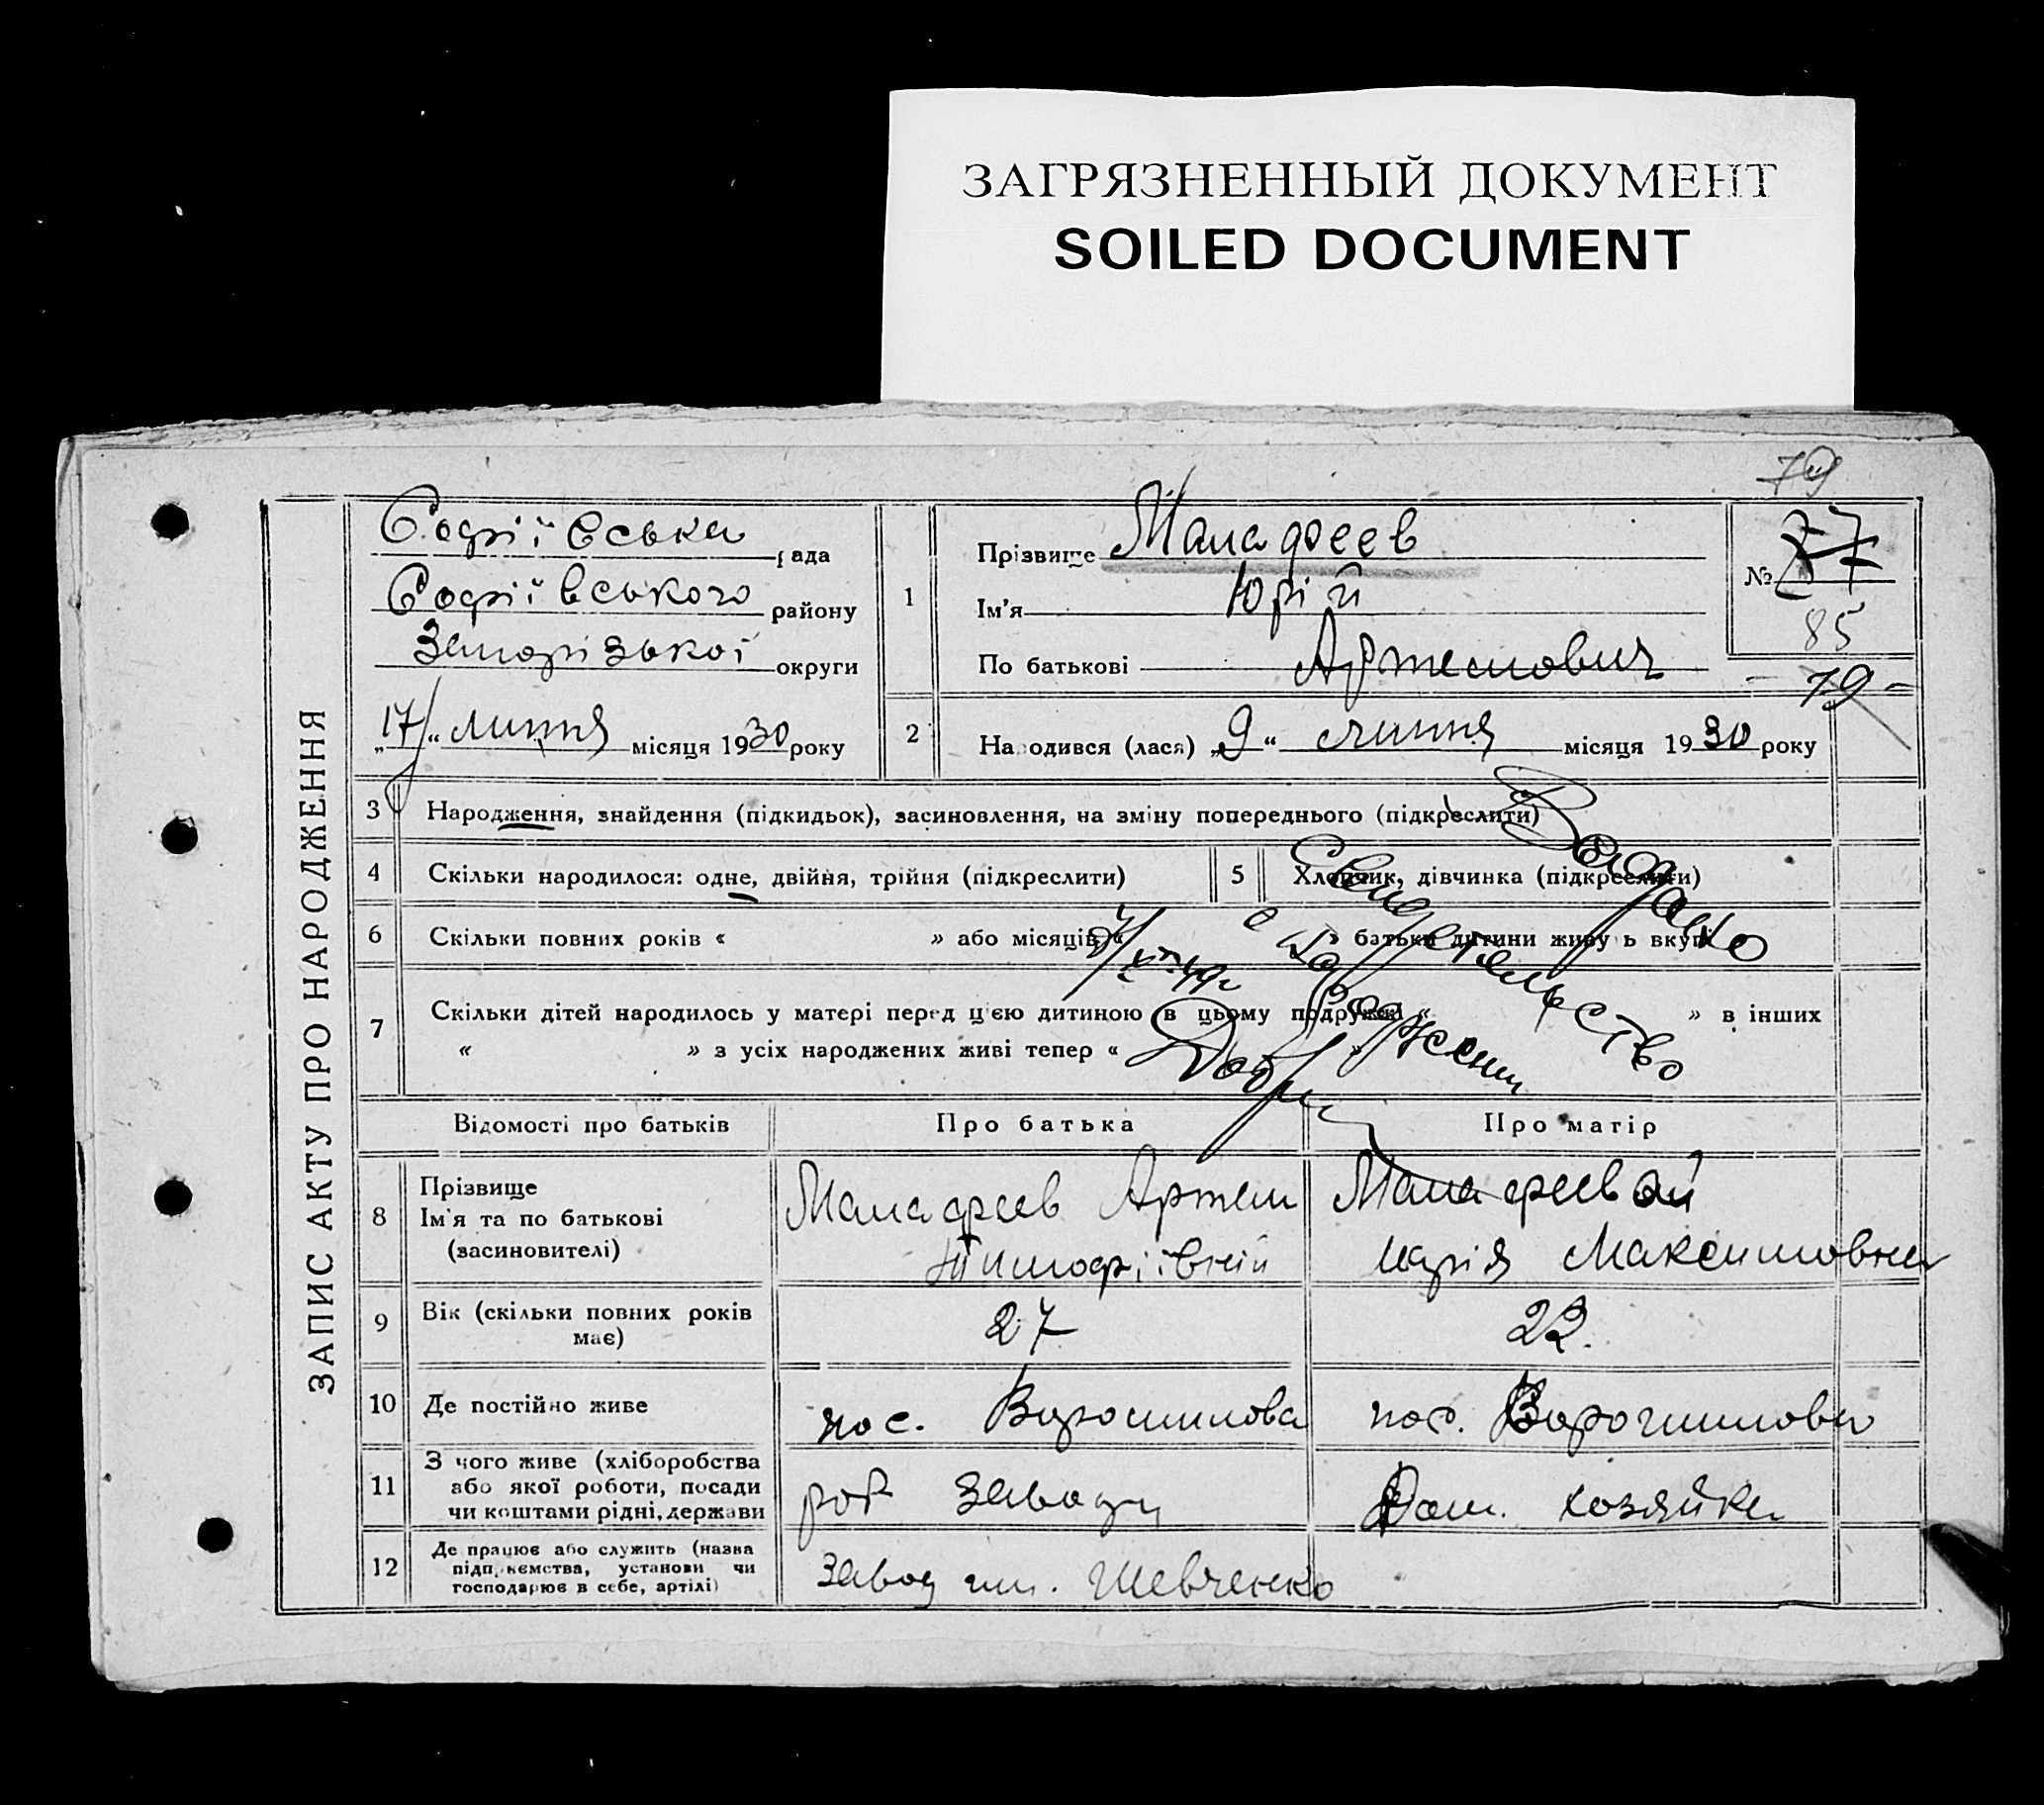 ЗАГРЯЗНЕННЫЙ ДОКУМЕНТ
SOILED DOCUMENT
79
ЗАПИС АКТУ ПРО НАРОДЖЕННЯ
Софіївська рада
Софіївського району
Запорізької округи
„17“ липня місяця 1930 року
1
Прізвище Малафеев
Ім'я Юрій
По батькові Артемович
№ 77
85
79
2
Народився (лася) „9“ липня місяця 1930 року
3 Народження, знайдення (підкидьок), засиновлення, на зміну попереднього (підкреслити)
4 Скільки народилося: одне, двійня, трійня (підкреслити)
5 Хлопчик, дівчинка (підкреслити)
6 Скільки повних років « » або місяців « » батьки дитини живуть вкупі
7 Скільки дітей народилось у матері перед цією дитиною в цьому подружжі « » в інших
« » з усіх народжених живі тепер « »
Выдано
Свидетельство
о рождении
Відомості про батьків
Про батька
Про матір
8 Прізвище
Ім'я та по батькові
(засиновителі)
Малафеев Артем
Малафеевой
Марія Максимовна
9 Вік (скільки повних років
має)
27
22.
10 Де постійно живе
пос. Ворошилова
пос. Ворошилова
11 З чого живе (хліборобства
або якої роботи, посади
чи коштами рідні, держави
роб заводу
Дом. хозяйка
12 Де працює або служить (назва
підприємства, установи чи
господарює в себе, артілі)
завод им. Шевченко